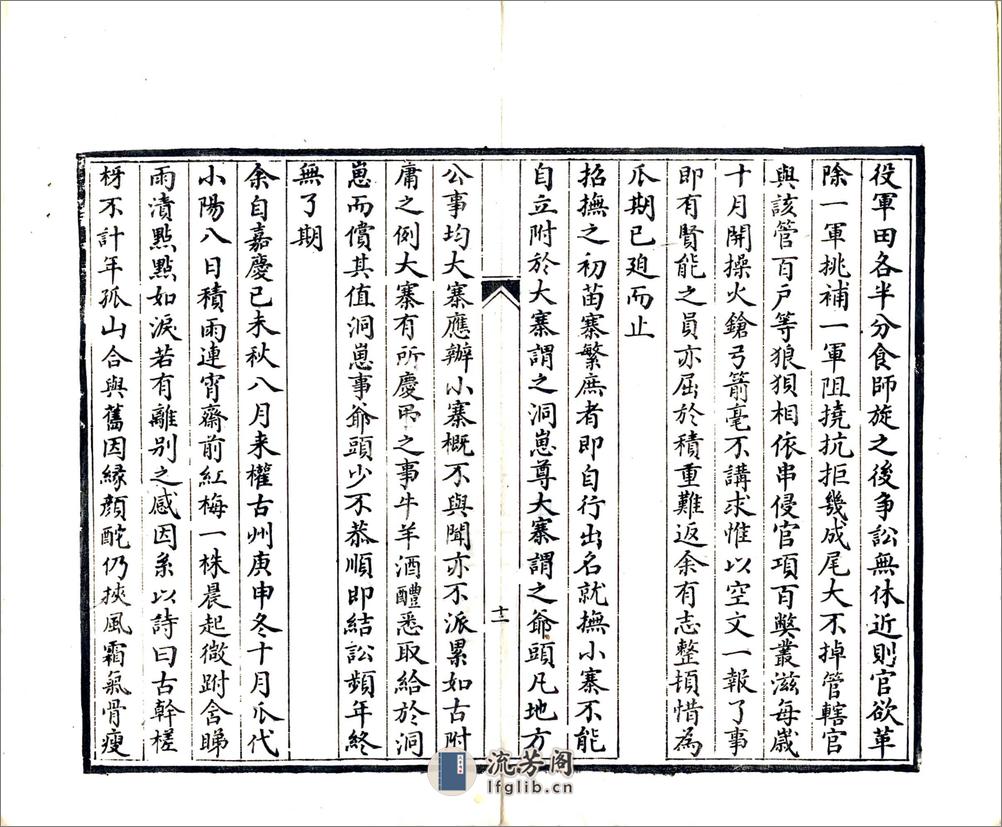 役軍田各半分食師旋之後爭訟無休近則官欲革
除一軍挑補一軍阻撓抗拒幾成尾大不掉管轄官
與該管百戶等狼狽相依串侵官項百弊叢滋每歲
十月開操火鎗弓箭毫不講求惟以空文一報了事
即有賢能之員亦屈於積重難返余有志整頓惜為
瓜期已廹而止
招撫之初苗寨繁庶者即自行出名就撫小寨不能
自立附於大寨謂之洞崽尊大寨謂之爺頭凡地方
十二
公事均大寨應辦小寨概不與聞亦不派累如古附
庸之例大寨有所慶弔之事牛羊酒醴悉取給於洞
崽而償其值洞崽事爺頭少不恭順即結訟頻年終
無了期
余自嘉慶己未秋八月来權古州庚申冬十月瓜代
小陽八日積雨連宵齋前紅梅一株晨起微跗含睇
雨漬點點如淚若有離别之感因系以詩曰古幹槎
枒不計年孤山合與舊因緣顔酡仍挾風霜氣骨瘦
流芳阁
lfglib.cn